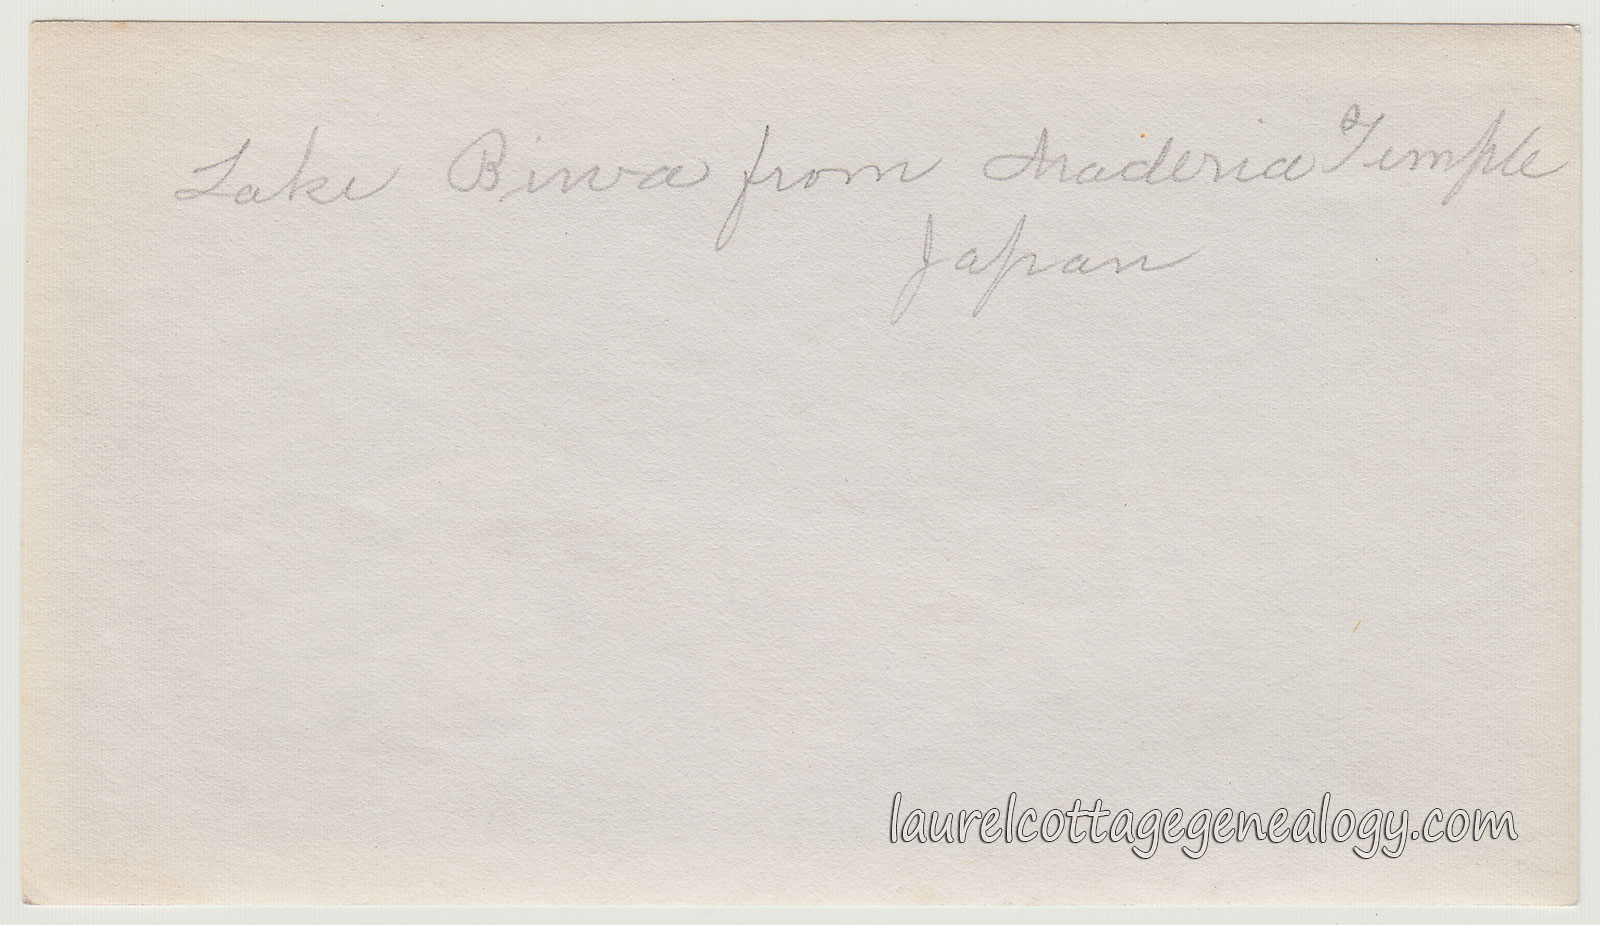 Lake Biwa from Maderia Temple
Japan
laurelcottagegenealogy.com